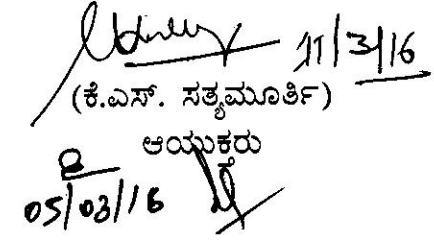 11/3/16
(ಕೆ.ಎಸ್. ಸತ್ಯಮೂರ್ತಿ)
ಆಯುಕ್ತರು
05/03/16